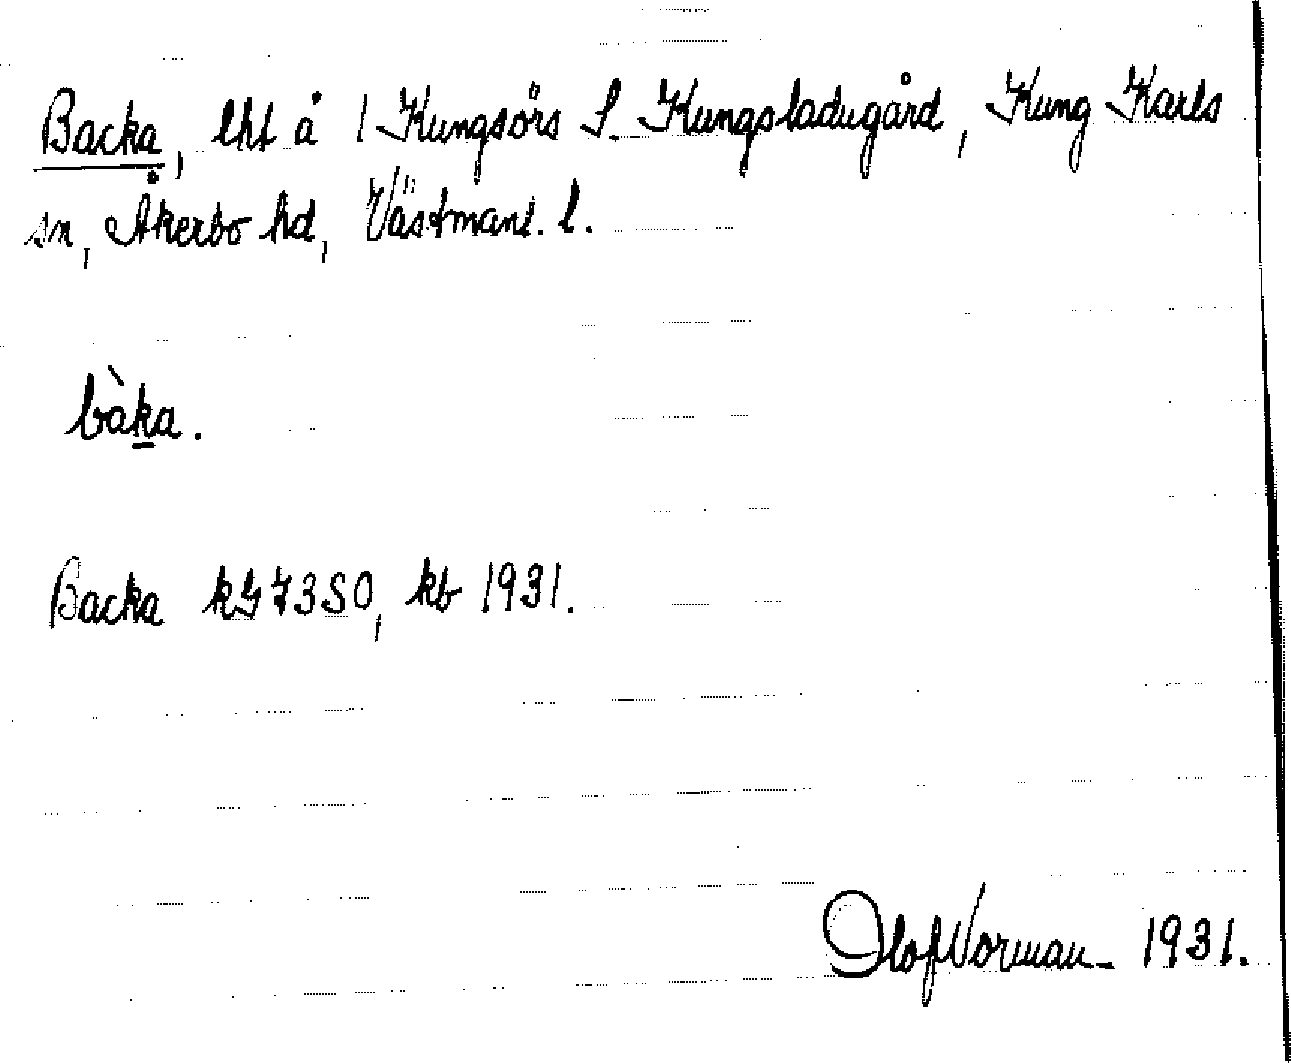 Backa, lht å 1 Kungsörs S. Kungsladugård, Kung Karls
sn, Åkerbo hd, Västmanl. l.
bàka.
Backa 73SO, kb 1931.
Olof Norman 1931.